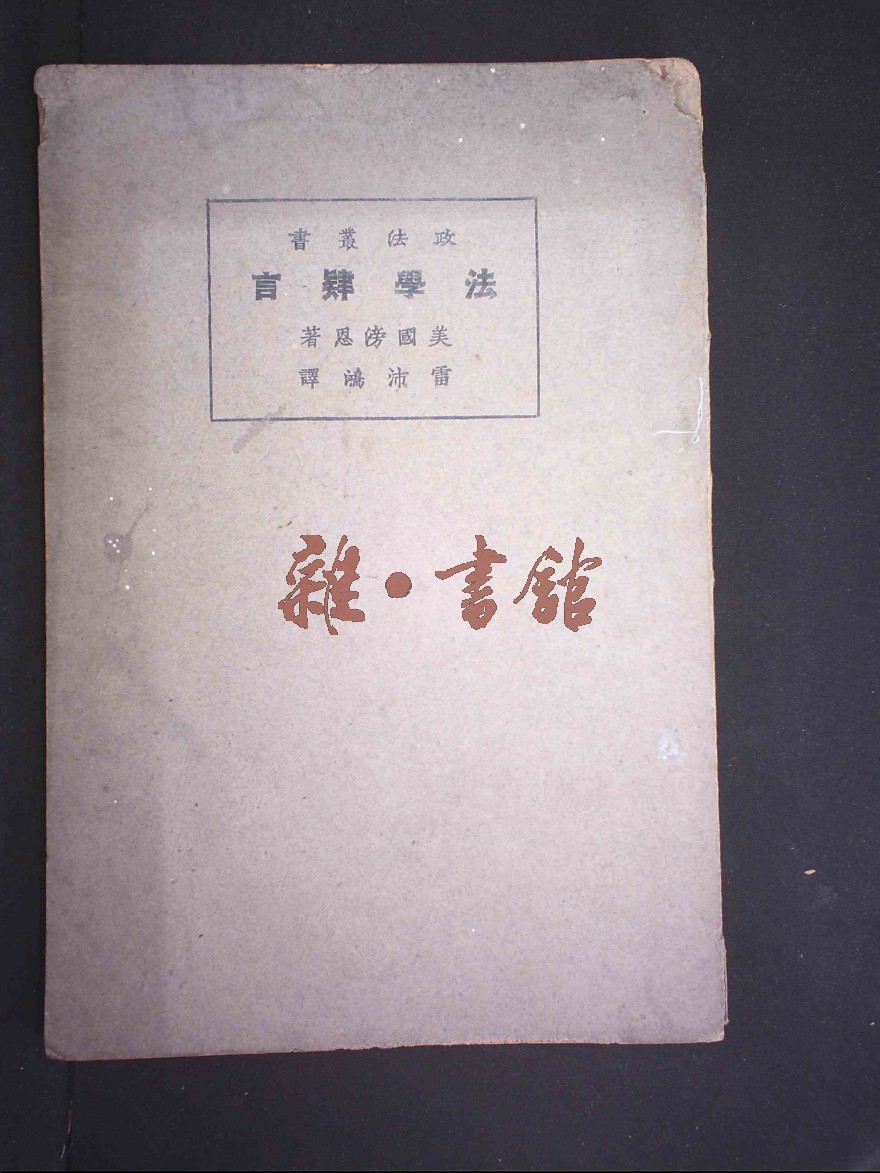 政法叢書
法學肄言
美國滂恩著
雷沛鴻譯
雜·書館